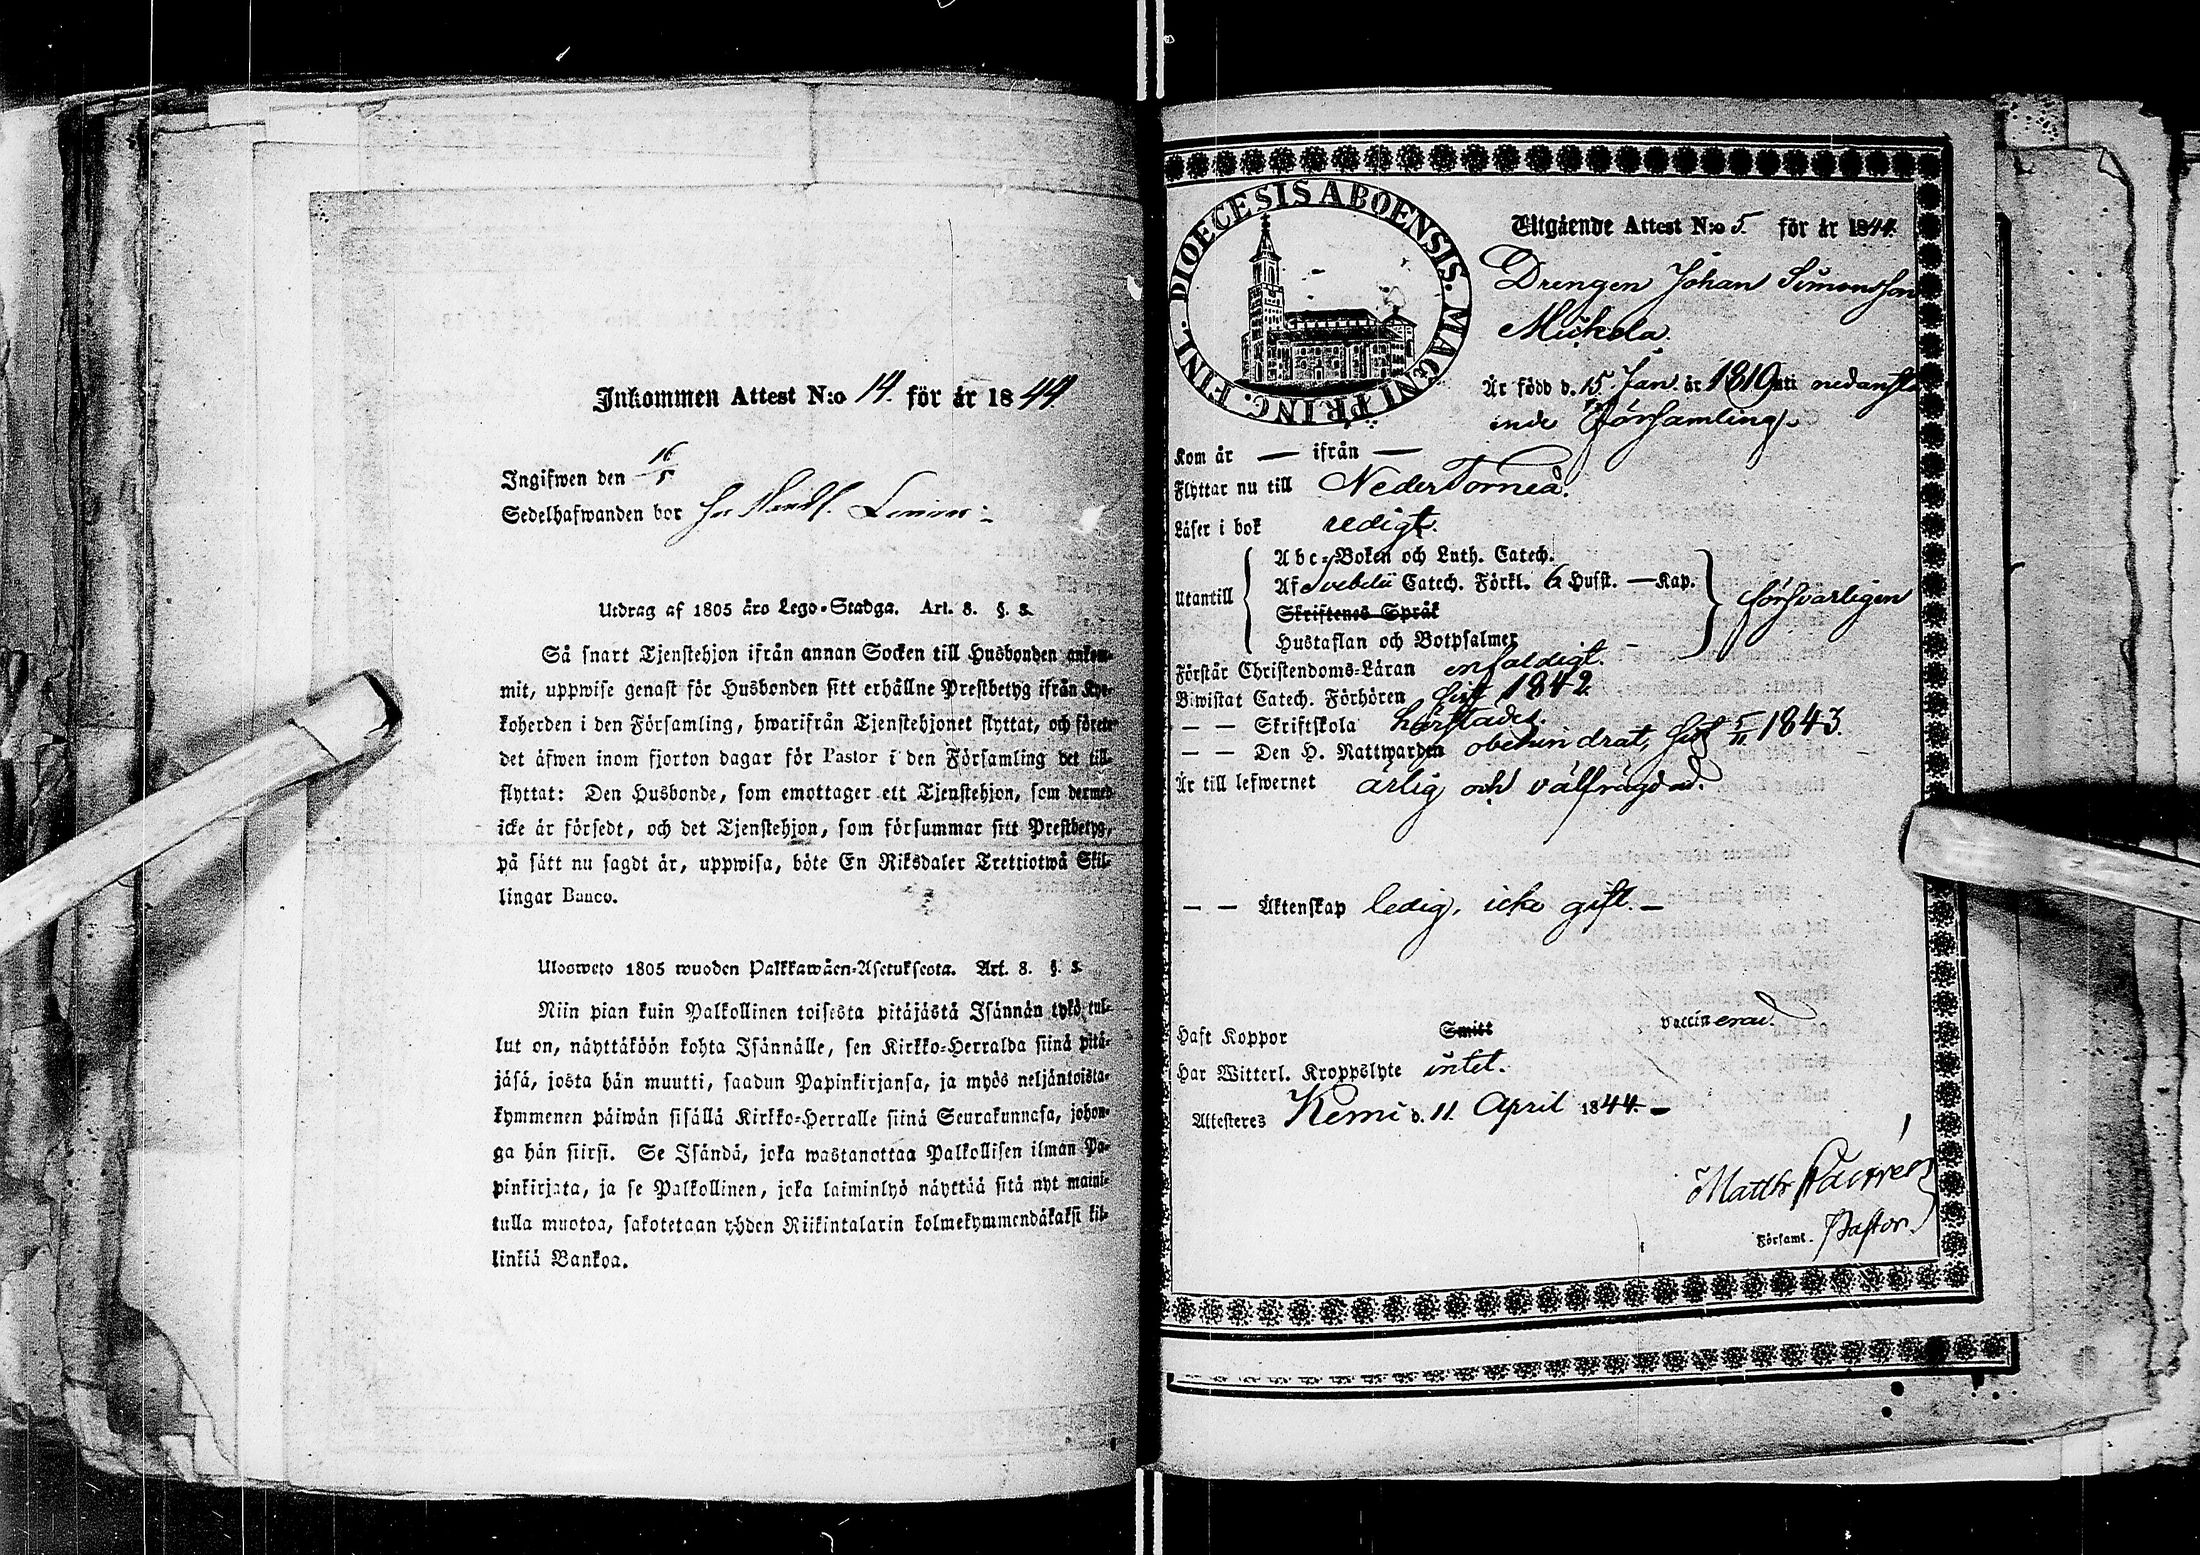 Inkommen Attest N:o 14. för år 1844.
Ingifwen den 16/5
Sedelhafwanden bor hos Hendr.
Utdrag af 1805 års Lego-Stadga. Art. 8. §. 3.
Så snart Tjenstehjon ifrån annan Socken till Husbonden ankom-
mit, uppwise genast för Husbonden sitt erhållne Prestbetyg ifrån Kyr-
koherden i den Församling, hwarifrån Tjenstehjonet flyttat, och förete
det äfwen inom fjorton dagar för Pastor i den Församling det till-
flyttat: Den Husbonde, som emottager ett Tjenstehjon, som dermed
icke är försedt, och det Tjenstehjon, som försummar sitt Prestbetyg,
på sätt nu sagdt är, uppwisa, böte En Riksdaler Trettiotwå Skil-
lingar Banco.
Ulosweto 1805 wuoden Palkkawäen-Asetuksesta. Art. 8. §. 3.
Niin pian kuin Palkollinen toisesta pitäjästä Isännän tykö tul-
lut on, näyttäköön kohta Isännälle, sen Kirkko-Herralda siinä pitä-
jäsä, josta hän muutti, saadun Papinkirjansa, ja myös neljäntoista-
kymmenen päiwän sisällä Kirkko-Herralle siinä Seurakunnasa, johon-
ga hän siirsi. Se Isändä, joka wastanottaa Palkollisen ilman Pa-
pinkirjata, ja se Palkollinen, joka laiminlyö näyttää sitä nyt maini-
tulla muotoa, sakotetaan yhden Riikintalarin kolmekymmendäkaksi kil-
linkiä Bankoa.
DIOECESIS ABOENSIS. MAGNI PRINC. FINL.
Utgående Attest N:o 5. för år 1844.
Drengen Johan Simonsson
Mickola.
Är född d. 15. Jan. år 1819 uti nedanstå
ende Församling.
Kom år — ifrån —
Flyttar nu till Neder Torneå.
Läser i bok redigt.
Utantill
Abc-Boken och Luth. Catech.
Af Svebelii Catech. Förkl. 6 Hufst. — Kap.
Skriftenes Språk
Hustaflan och Botpsalmer
försvarligen
Förstår Christendoms-Läran enfaldigt.
Biwistat Catech. Förhören sist 1842
— — Skriftskola härstädes.
— — Den H. Nattwarden obehindrat, sist 5/11 1843.
Är till lefwernet ärlig och välfrägdad.
— — Äktenskap ledig, icke gift. —
Haft Koppor Smitt vaccinerad.
Har Witterl. Kroppslyte intet.
Attesteres Kemi d. 11. April 1844. —
Matth
Församl. Pastor.